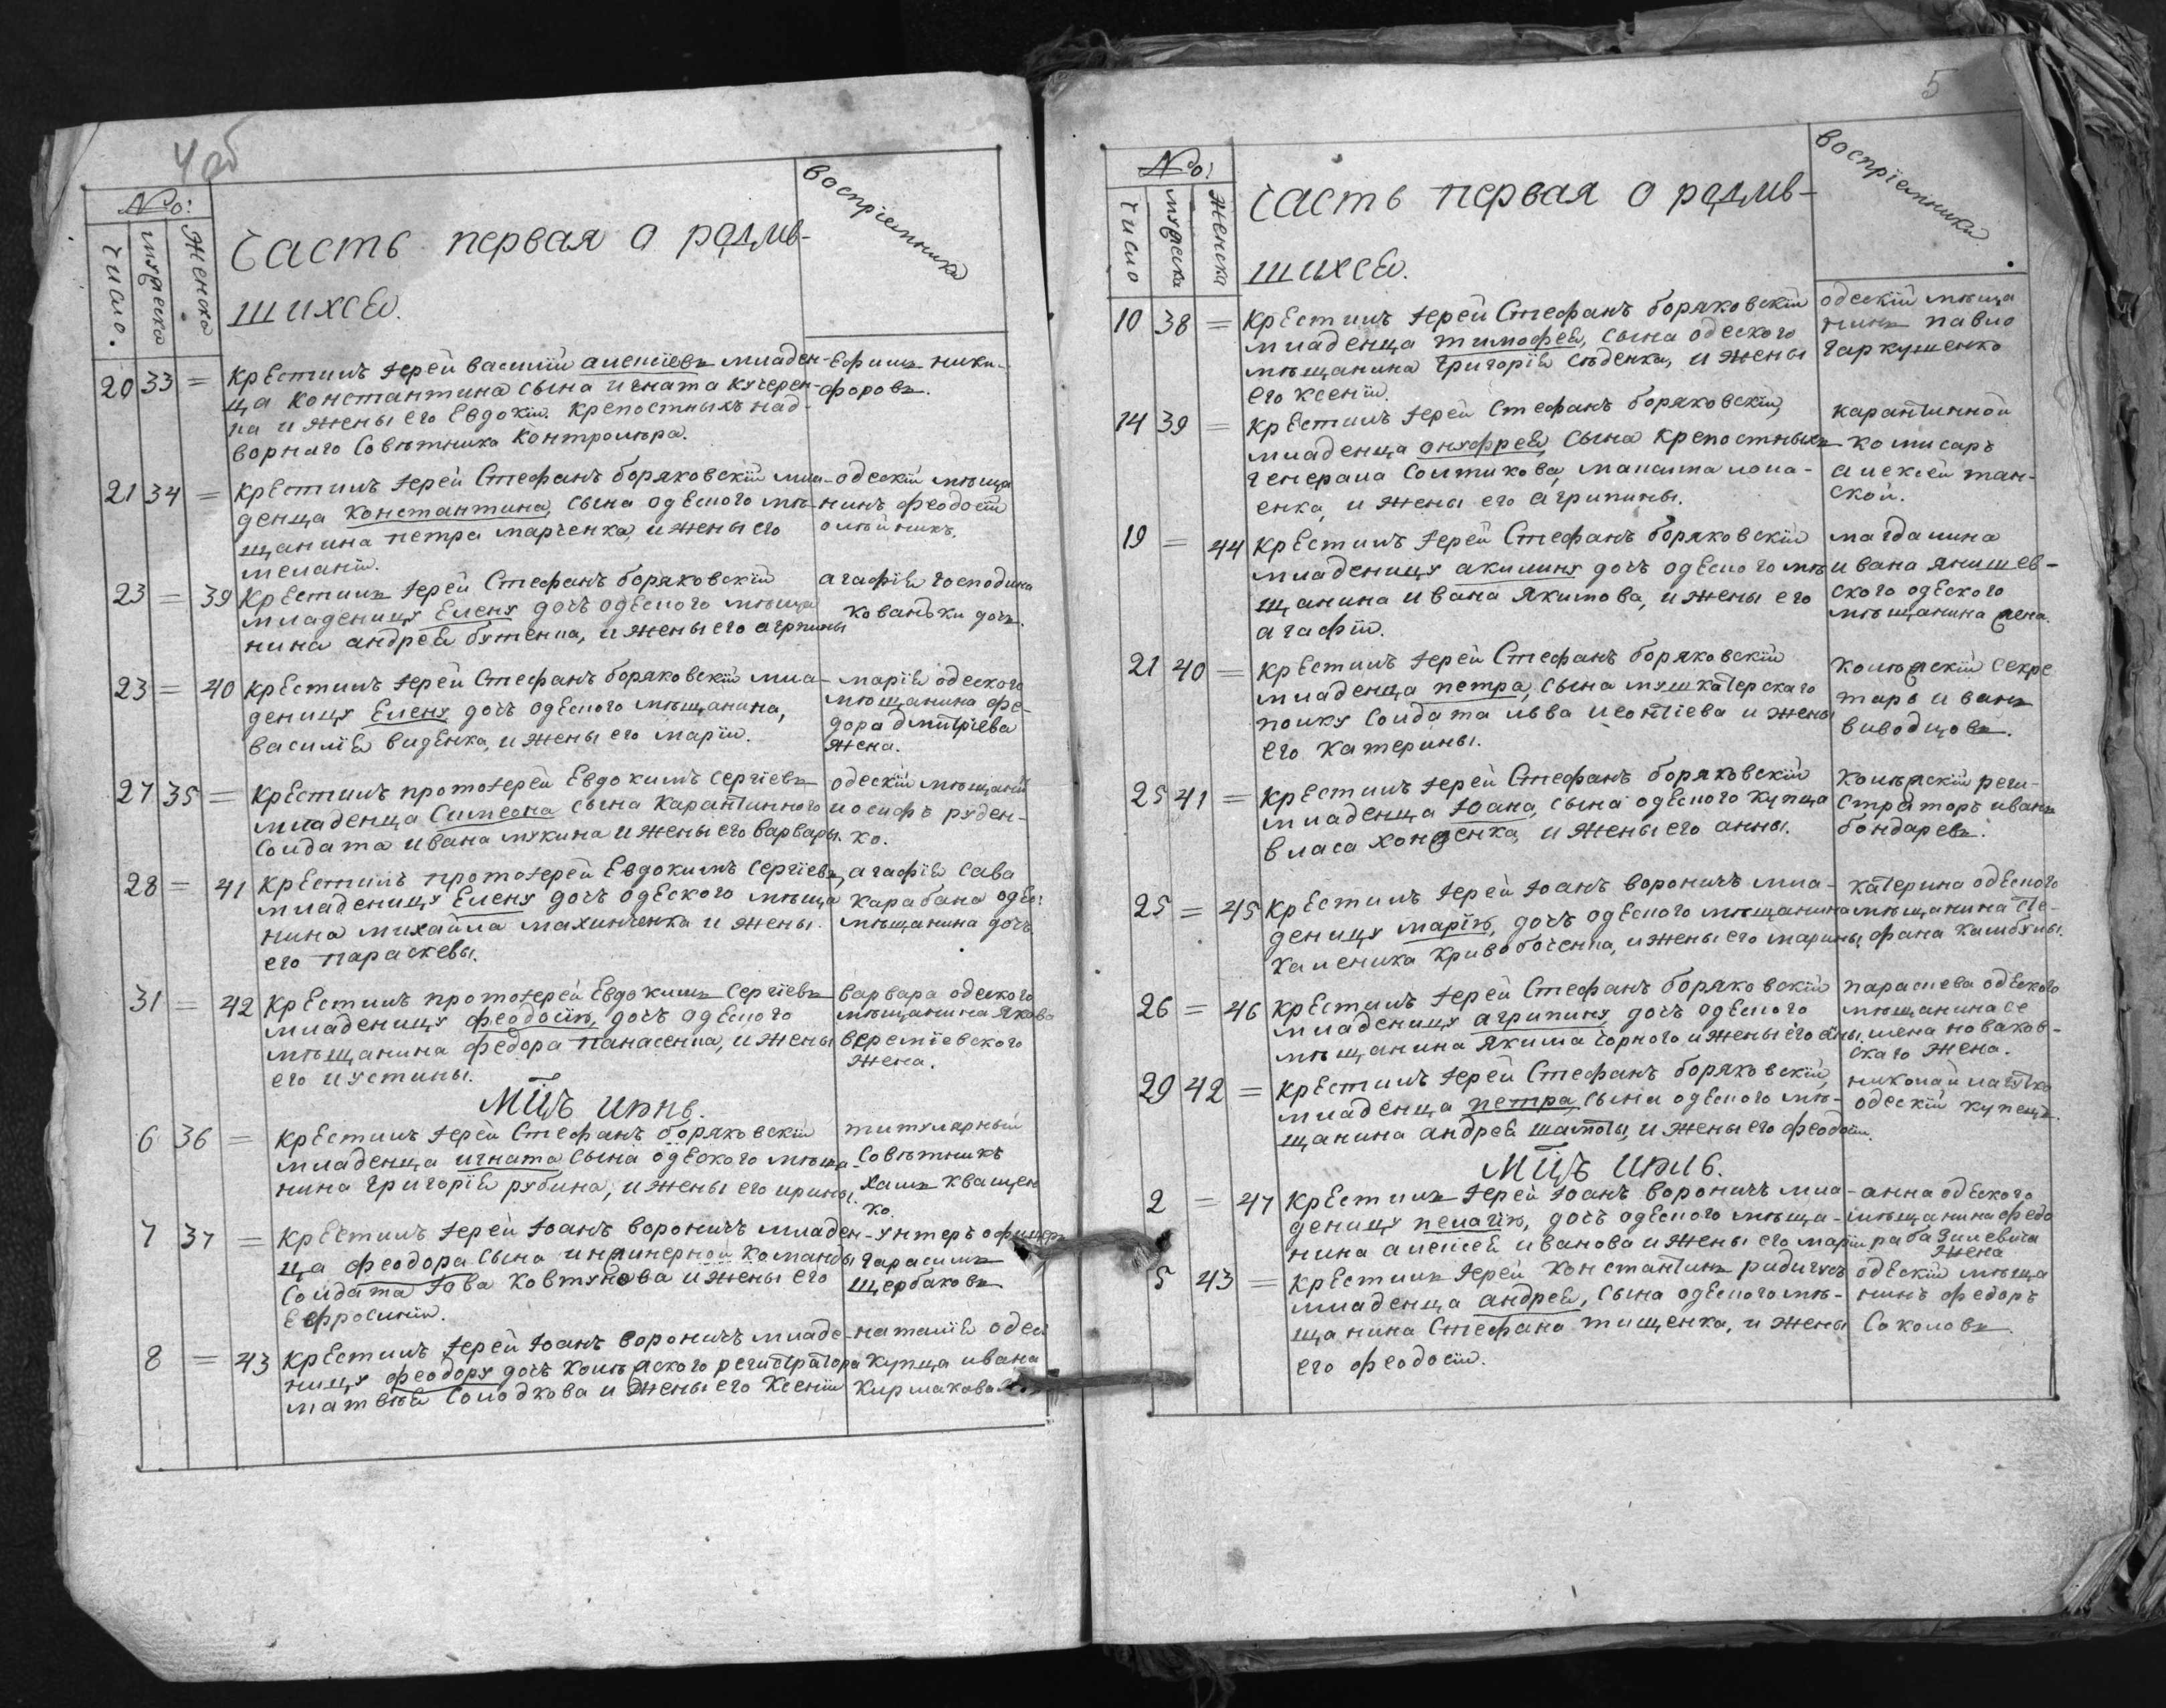 4 об
No:
число.
мужеска
женска
Часть первая о родив-
шихся.
воспріемники
20 33 = Крестилъ Іерей василій алексіевъ младен-
ца константина сына игната кучерен-
ка и жены его Евдокіи. крепостныхъ над-
ворнаго Совѣтника контролюра.
Ефимъ ники-
форовъ.
21 34 = Крестилъ Іерей Стефанъ боряковскій мла-
денца константина, сына одеского мѣ-
щанина петра марченка, и жены его
меланіи.
одескій мѣща
нинъ феодосій
олѣйникъ.
23 = 39 Крестилъ Іерей Стефанъ боряковскій
младеницу Елену дочь одеского мѣща
нина андрея бутенка, и жены его агрипины
агафія господина
кованьки дочь.
23 = 40 Крестилъ Іерей Стефанъ боряковскій мла-
деницу Елену дочь одеского мѣщанина,
василія виденка, и жены его маріи.
марія одеского
мѣщанина фе-
дора дмитріева
жена.
27 35 = Крестилъ протоіерей Евдокимъ Сергіевъ
младенца Симеона сына карантинного
Солдата ивана мукина и жены его варвары.
одескій мѣщанинъ
иосифъ руден-
ко.
28 = 41 Крестилъ протоіерей Евдокимъ Сергіевъ,
младеницу Елену дочь одеского мѣща
нина михайла махинченка и жены
его параскевы.
агафія сава
карабана одес:
мѣщанина дочь
31 = 42 Крестилъ протоіерей Евдокимъ Сергіевъ
младеницу феодосію, дочь одеского
мѣщанина федора панасенка, и жены
его иустины.
варвара одеского
мѣщанина Якова
веремѣевского
жена.
Мцъ июнь.
6 36 = Крестилъ Іерей Стефанъ боряковскій
младенца игната сына одеского мѣща-
нина григорія рубина, и жены его ирины.
титулярный
Совѣтникъ
квашен
ко.
7 37 = Крестилъ Іерей Іоанъ вороничъ младен-
ца феодора сына инжинерной команды
Солдата Іова ковтунова и жены его
Ефросиніи.
унтеръ офицеръ
гарасимъ
щербаковъ
8 = 43 Крестилъ Іерей Іоанъ вороничъ младе-
ницу феодору дочь колѣжского регистратора
матвѣя Солодкова и жены его Ксеніи
наталія одес
купца ивана
кирмакова
5
No:
число
мужеска
женска
Часть первая о родив-
шихся.
воспріемники
10 38 = Крестилъ Іерей Стефанъ боряковскій
младенца тимофея, сына одеского
мѣщанина григорія Сѣденка, и жены
его ксеніи.
одескій мѣща
нинъ павло
гаркушенко
14 39 = Крестилъ Іерей Стефанъ боряковскій,
младенца онуфрея, сына крепостныхъ
генерала Солтикова, малахта лопа-
енка, и жены его агрипины.
карантинной
комисаръ
алексей тан-
ской.
19 = 44 Крестилъ Іерей Стефанъ боряковскій
младеницу акилину дочь одеского мѣ
щанина ивана Якимова, и жены его
агафіи.
магдалина
ивана янишев-
ского одеского
мѣщанина жена.
21 40 = Крестилъ Іерей Стефанъ боряковскій
младенца петра, сына мушкатерского
полку Солдата льва леонтіева и жены
его катерины.
колѣжскій секре
тарь иванъ
виводцовъ.
25 41 = Крестилъ Іерей Стефанъ боряковскій
младенца Іоана, сына одеского купца
власа хонденка, и жены его анны.
колѣжскій реги-
страторъ иванъ
бондаревъ.
25 = 45 Крестилъ Іерей Іоанъ вороничъ мла-
деницу марію, дочь одеского мѣщанина
каленика кривобоченка, и жены его марины
катерина одеского
мѣщанина сте-
фана калибулы.
26 = 46 Крестилъ Іерей Стефанъ боряковскій
младеницу агрипину дочь одеского
мѣщанина Якима чорного и жены его аны
параскева одеского
мѣщанина се
мена новаков-
ского жена.
29 42 = Крестилъ Іерей Стефанъ боряковскій,
младенца петра, сына одеского мѣ-
щанина андрея шаптлы, и жены его феодосіи.
николай лагутко
одескій купецъ.
Мцъ июль.
2 = 47 Крестилъ Іерей Іоанъ вороничъ мла-
деницу пелагію, дочь одеского мѣща-
нина алексея иванова и жены его маріи
анна одеского
мѣщанина федо
ра базилевича
жена
5 43 = Крестилъ Іерей Константинъ
младенца андрея, сына одеского мѣ-
щанина Стефана тищенка, и жены
его феодосіи.
одескій мѣща
нинъ федоръ
Соколовъ.